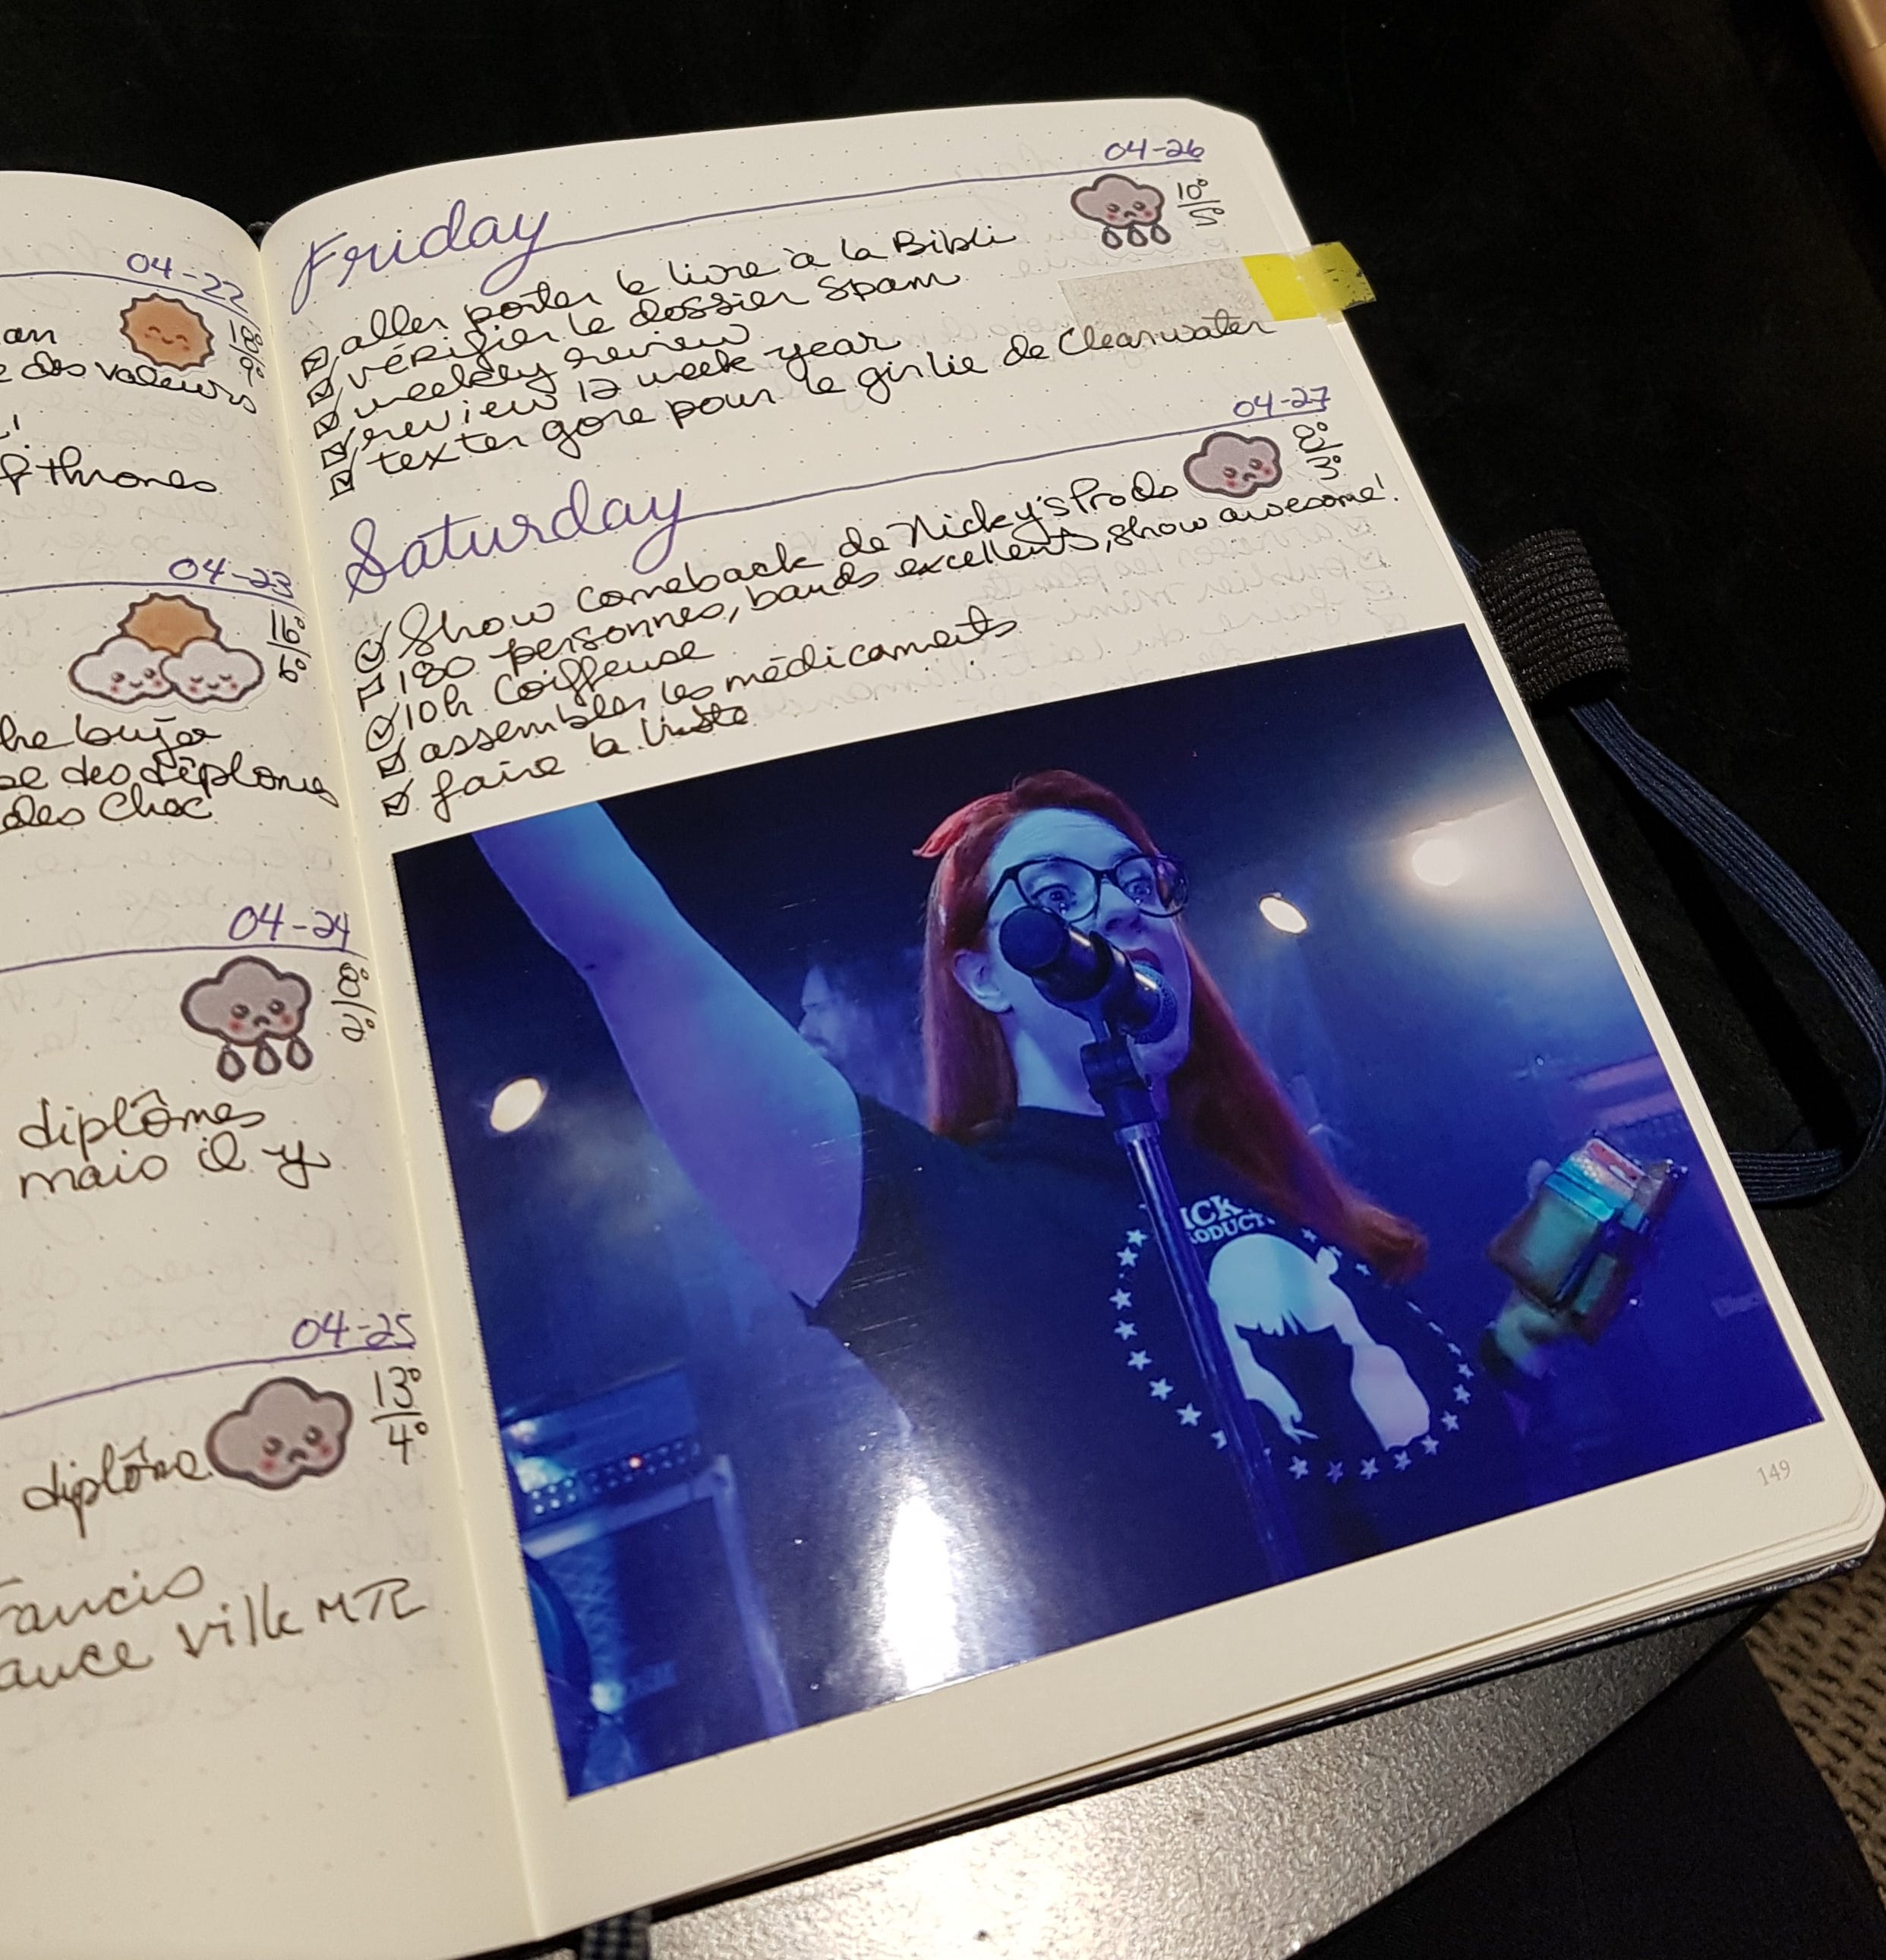 04-22
18°
9°
an
e des valeurs
!
f thrones
04-23
15°
5°
he bujo
se des diplômes
des Choc
04-24
8°
diplômes
mais il y
04-25
13°
4°
diplôme
Francis
ance ville MTL
04-26
Friday
10°
aller porter le livre à la Bibli
vérifier le dossier spam
weekly review
review 12 week year
texter gore pour le girlie de Clearwater
04-27
Saturday
8°
3°
Show comeback de Nicky's Prods
180 personnes, bands excellents, show awesome!
10h Coiffeuse
assembler les médicaments
faire la liste
ICK
ODUCT
149